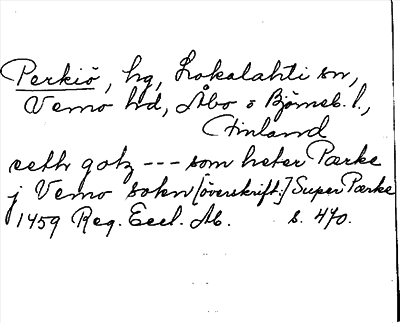 Perkiö, hg, Lokalahti sn,
Vemo hd, Åbo o Björneb. l.,
Finland
eeth gotz --- som heter Pærke
j Vemo sokn [överskrift:] Super Pærke
1459 Reg. Eccl. Ab. s. 470.